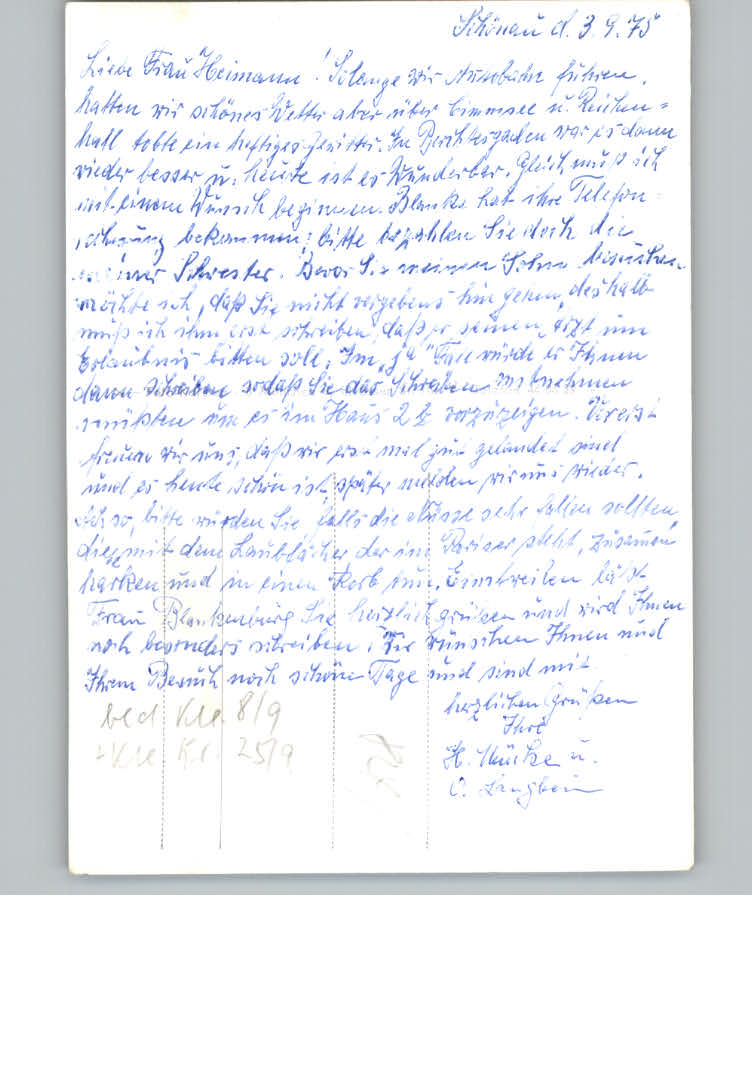 Schönau d. 3.9.75
Liebe Frau Heimann! Solange wir Autobahn fuhren,
hatten wir schönes Wetter aber über Cimmsee u. Reichen=
hall tobte ein heftiges Gewitter. In Berchtesgaden war es dann
wieder besser u. heute ist es Wunderbar. Gleich muß ich
mit einem Wunsch beginnen. Blanka hat ihre Telefon=
rechnung bekommen; bitte bezahlen Sie doch die
meiner Schwester. Bevor Sie meinen Sohn besuchen
möchte ich, daß Sie nicht vergebens hin gehen, deshalb
muß ich ihm erst schreiben, daß er seinen Arzt um
Erlaubnis bitten soll. Im "ja" Fall würde er Ihnen
dann schreiben sodaß Sie das Schreiben mitnehmen
müßten um es im Haus 2 vorzuzeigen. Vorerst
freuen wir uns, daß wir erst mal gut gelandet sind
und es heute schön ist, später melden wir uns wieder.
Ach so, bitte würden Sie, falls die Nüsse sehr fallen sollten,
diese mit dem Laubfächer der im steht, zusammen
harken und in einen Korb tun. Einstweilen läßt
Frau Blankenburg Sie herzlich grüßen und wird Ihnen
noch besonders schreiben. Wir wünschen Ihnen und
Ihrem Besuch noch schöne Tage und sind mit
herzlichen Grüßen
Ihre
H. Mücke u.
O. Langbein
8/9
25/9